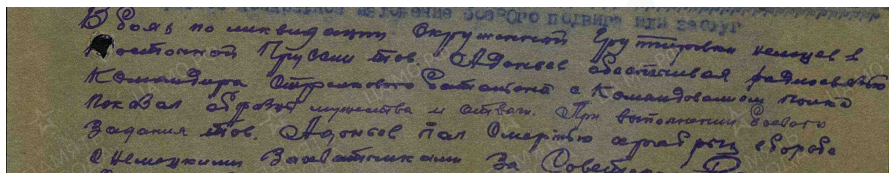 изложение боевого подвига или заслуг
В боях по ликвидации окруженной группировки немцев в
Восточной Пруссии тов. обеспечивая радиосвязью
Командира Стрелкового батальона с Командованием полка
показал образцы мужества и отваги. При выполнении боевого
задания тов. пал Смертью храбрых в борьбе
с немецкими Захватчиками За